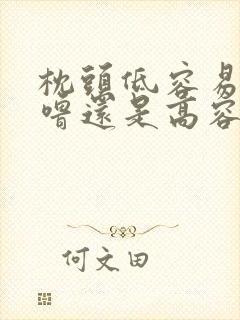 枕頭低容易
嚐還是高容
何文田